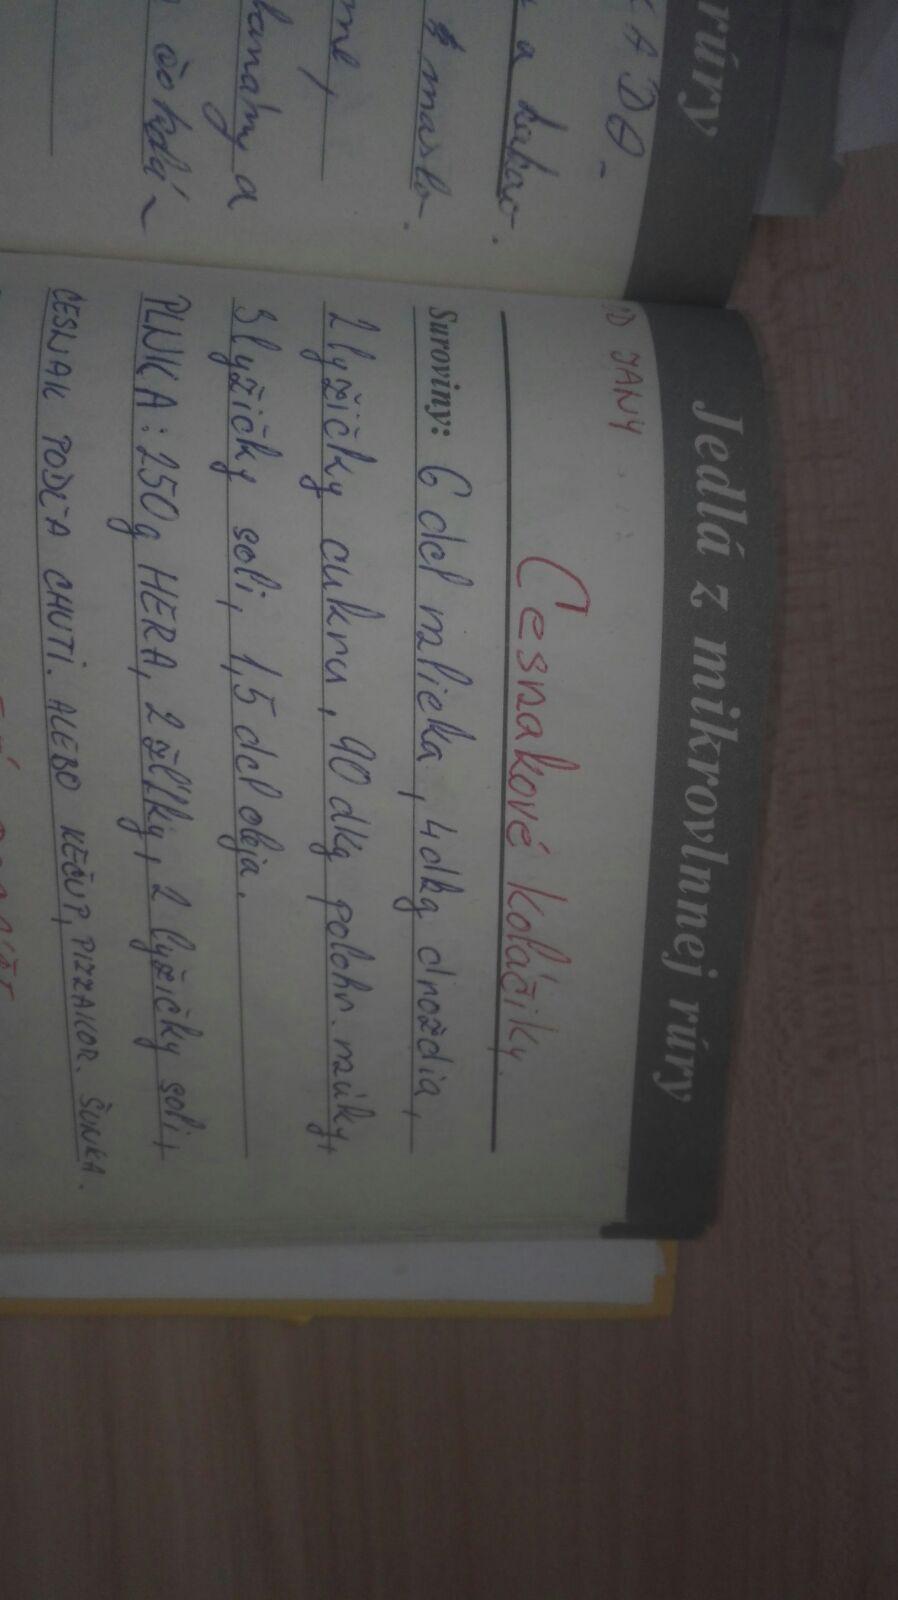 rúry
KADO-
a kakao.
masla.
banány a
čokolá-
Jedlá z mikrovlnnej rúry
OD JANY
Cesnakové koláčiky.
Suroviny: 6 dcl mlieka, 4dkg droždia,
2 lyžičky cukru, 90 dkg polohr. múky,
3 lyžičky soli, 1,5 dcl oleja.
PLNKA: 250g HERA, 2 žĺtky, 2 lyžičky soli,
CESNAK PODĽA CHUTI. ALEBO KEČUP, PIZZAKOR. ŠUNKA.